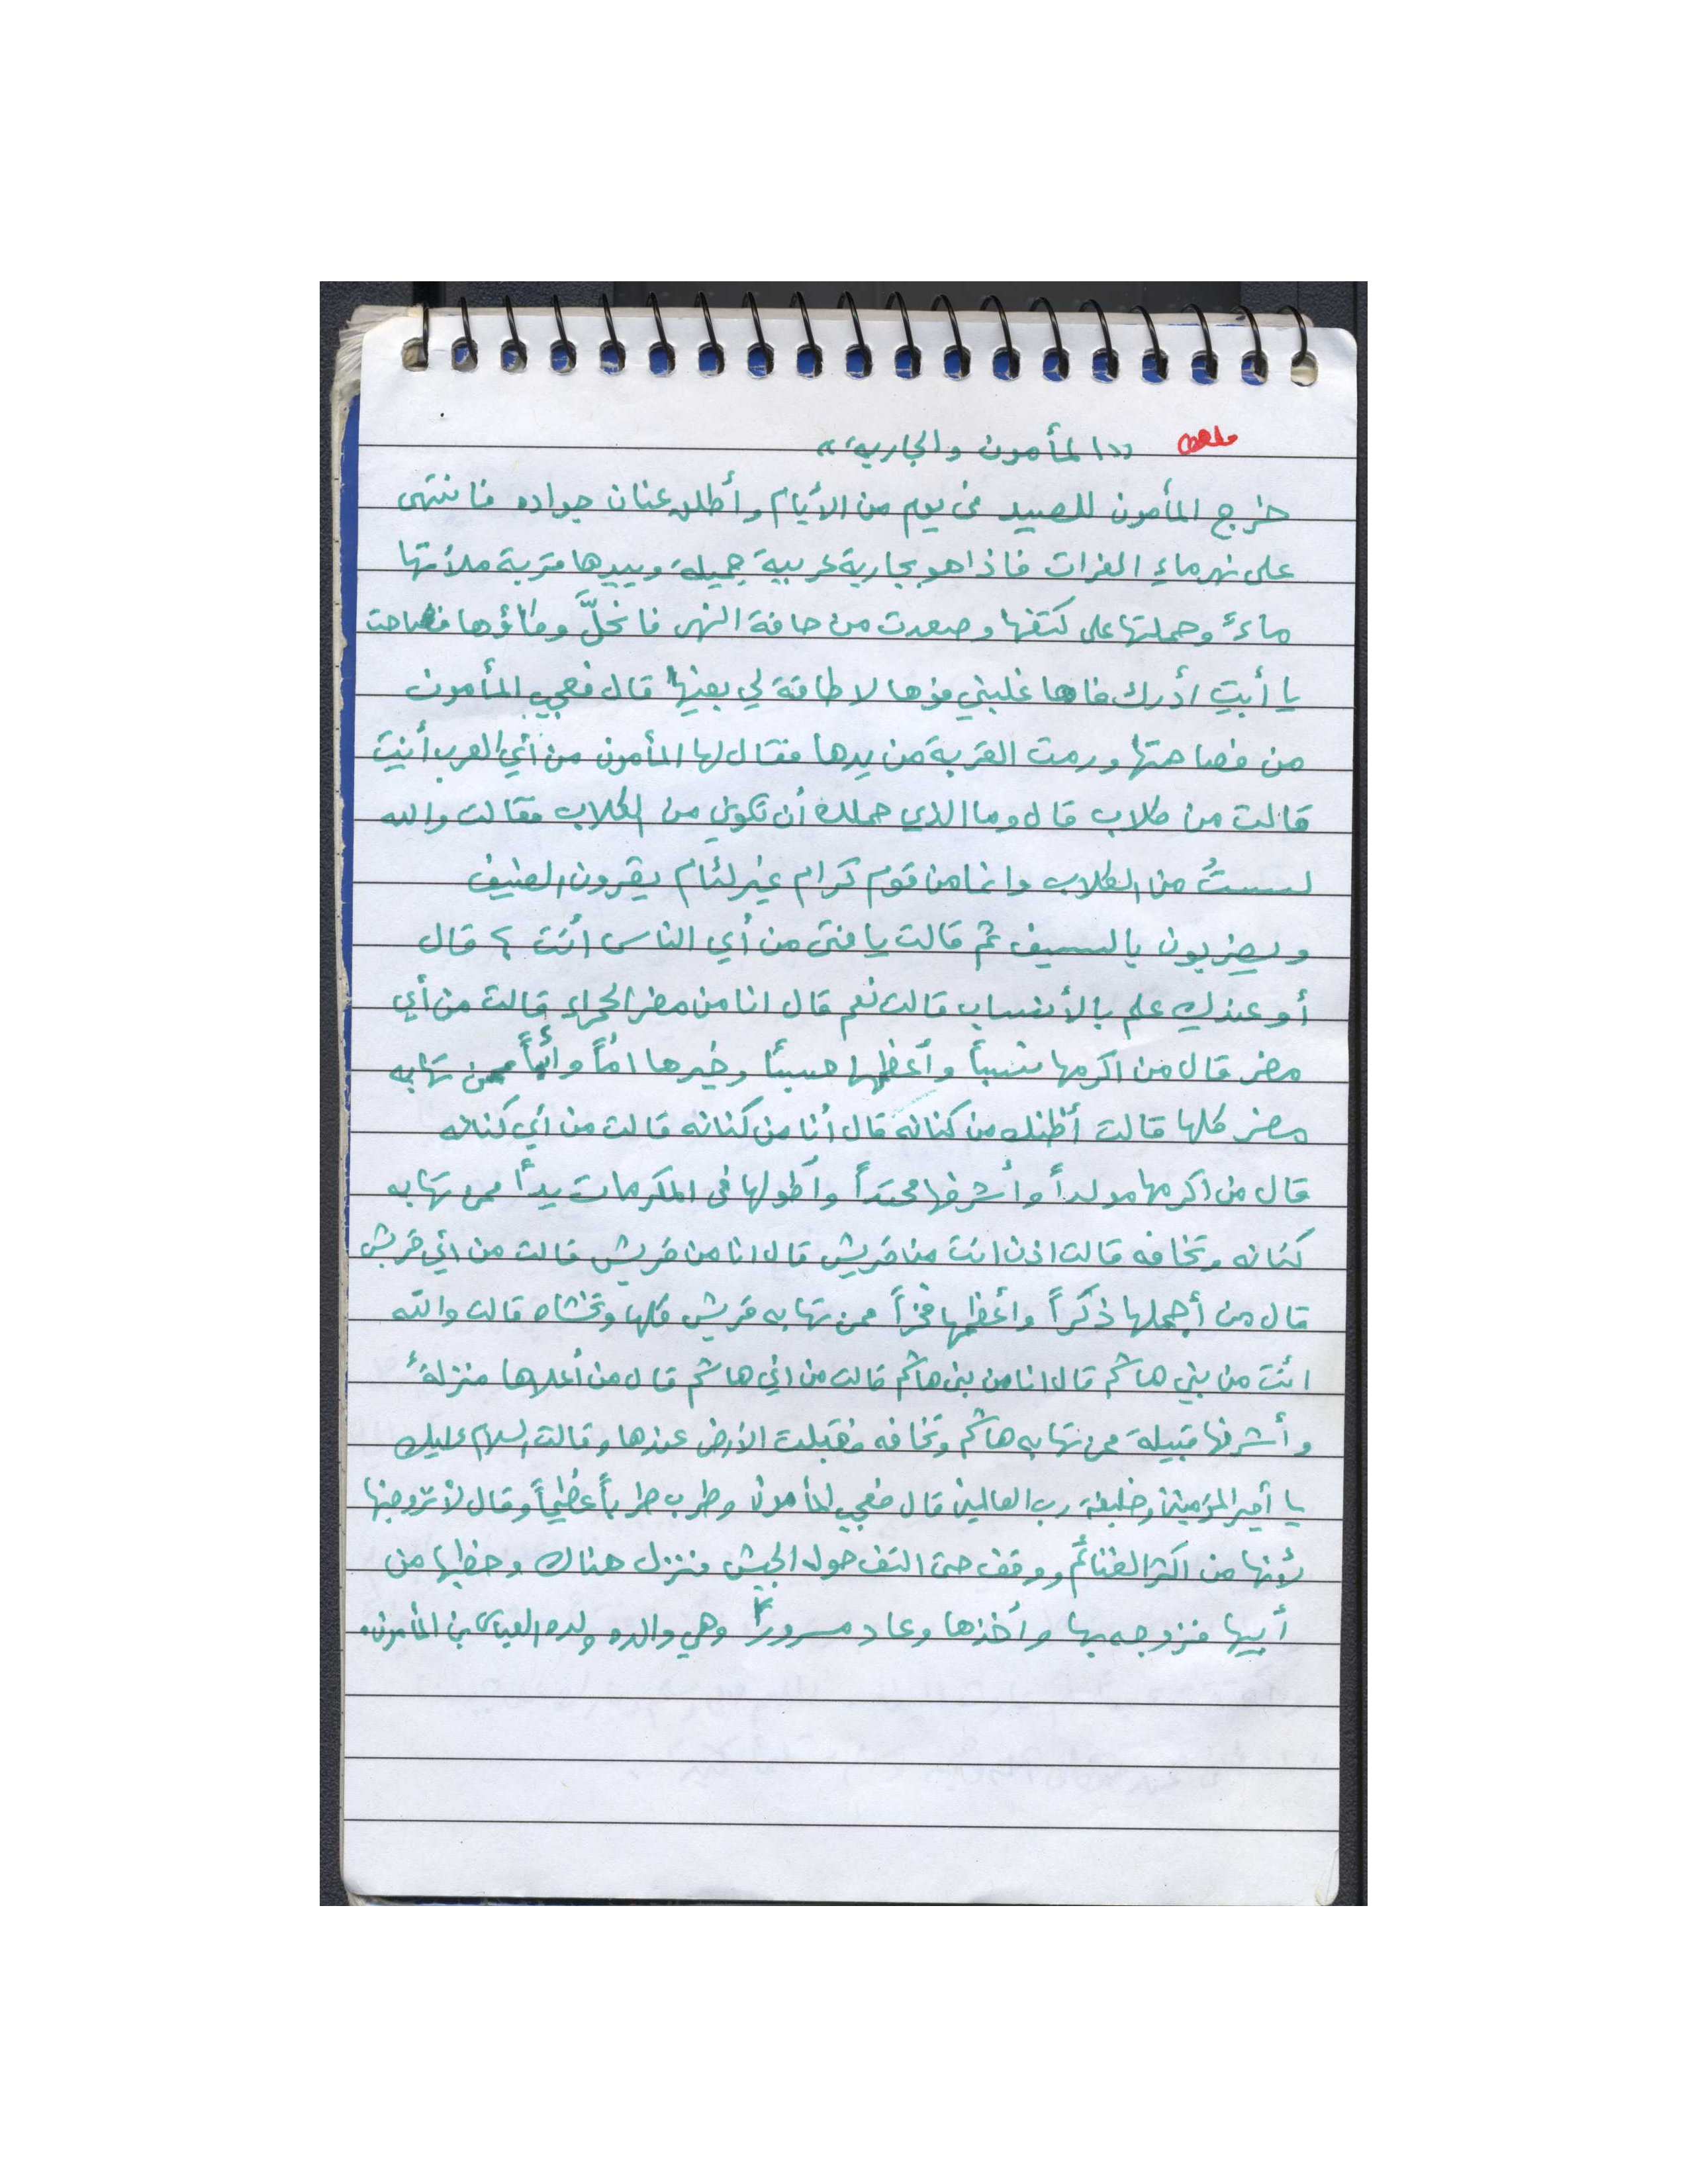 مهم ((المأمون والجارية))
خرج المأمون للصيد في يوم من الأيام وأطلق عنان جواده فانتهى
على نهر ماء الفرات فاذا هو بجارية عربية جميلة وبيدها قربة ملأتها
ماءً وحملتها على كتفها وصعدت من حافة النهر فانحلَّ وكاؤها فصاحت
يا أبتِ أدرك فاها غلبني فوها لا طاقة لي بفيها قال فعجب المأمون
من فصاحتها ورمت القربة من يدها فقال لها المأمون من أي العرب أنتِ
قالت من كلاب قال وما الذي حملك أن تكوني من الكلاب فقالت والله
لستُ من الكلاب وانما من قوم كرام غير لئام يقرون الضيف
ويضربون بالسيف ثم قالت يا فتى من أي الناس أنت ؟ قال
أو عندكِ علم بالأنساب قالت نعم قال انا من مضر الحمراء قالت من أي
مضر قال من اكرمها نسباً وأعظمها حسباً وخيرها أماً وأباً ممن تهابه
مضر كلها قالت أظنك من كنانه قال أنا من كنانه قالت من أي كنانه
قال من اكرمها مولداً وأشرفها محتداً وأطولها في المكرمات يداً ممن تهابه
كنانه وتخافه قالت اذن انت من قريش قال انا من قريش قالت من اي قريش
قال من أجملها ذكراً وأعظمها فخراً ممن تهابه قريش كلها وتخشاه قالت والله
انت من بني هاشم قال انا من بني هاشم قالت من اي هاشم قال من أعلاها منزلةً
وأشرفها قبيلة ممن تهابه هاشم وتخافه فقبلت الأرض عندها وقالت السلام عليك
يا أمير المؤمنين وخليفة رب العالمين قال فعجب المأمون وطرب طرباً عظيماً وقال لأتزوجنها
لأنها من اكثر الغنائم ووقف حتى التف حوله الجيش فنزل هناك وخطبها من
أبيها فزوجه بها وأخذها وعاد مسروراً وهي والده ولده العباس بن المأمون.